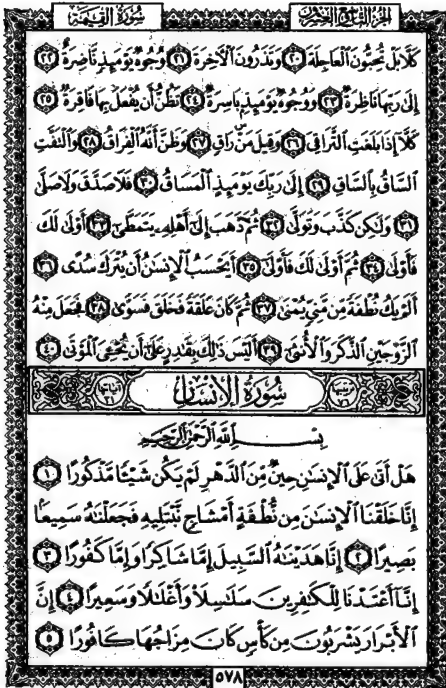 سُورَةُ القِيَامَةِ الجُزْءُ التَّاسِعُ وَالعِشْرُونَ
كَلَّا بَلْ تُحِبُّونَ الْعَاجِلَةَ ٢٠ وَتَذَرُونَ الْآخِرَةَ ٢١ وُجُوهٌ يَوْمَئِذٍ نَّاضِرَةٌ ٢٢
إِلَىٰ رَبِّهَا نَاظِرَةٌ ٢٣ وَوُجُوهٌ يَوْمَئِذٍ بَاسِرَةٌ ٢٤ تَظُنُّ أَن يُفْعَلَ بِهَا فَاقِرَةٌ ٢٥
كَلَّا إِذَا بَلَغَتِ التَّرَاقِيَ ٢٦ وَقِيلَ مَنْ رَاقٍ ٢٧ وَظَنَّ أَنَّهُ الْفِرَاقُ ٢٨ وَالْتَفَّتِ
السَّاقُ بِالسَّاقِ ٢٩ إِلَىٰ رَبِّكَ يَوْمَئِذٍ الْمَسَاقُ ٣٠ فَلَا صَدَّقَ وَلَا صَلَّىٰ
٣١ وَلَٰكِن كَذَّبَ وَتَوَلَّىٰ ٣٢ ثُمَّ ذَهَبَ إِلَىٰ أَهْلِهِ يَتَمَطَّىٰ ٣٣ أَوْلَىٰ لَكَ
فَأَوْلَىٰ ٣٤ ثُمَّ أَوْلَىٰ لَكَ فَأَوْلَىٰ ٣٥ أَيَحْسَبُ الْإِنسَانُ أَن يُتْرَكَ سُدًى ٣٦
أَلَمْ يَكُ نُطْفَةً مِّن مَّنِيٍّ يُمْنَىٰ ٣٧ ثُمَّ كَانَ عَلَقَةً فَخَلَقَ فَسَوَّىٰ ٣٨ فَجَعَلَ مِنْهُ
الزَّوْجَيْنِ الذَّكَرَ وَالْأُنثَىٰ ٣٩ أَلَيْسَ ذَٰلِكَ بِقَادِرٍ عَلَىٰ أَن يُحْيِيَ الْمَوْتَىٰ ٤٠
ترتيبها ٧٦ سُورَةُ الإِنسَان آياتها ٣١
بِسْمِ اللَّهِ الرَّحْمَٰنِ الرَّحِيمِ
هَلْ أَتَىٰ عَلَى الْإِنسَانِ حِينٌ مِّنَ الدَّهْرِ لَمْ يَكُن شَيْئًا مَّذْكُورًا ١
إِنَّا خَلَقْنَا الْإِنسَانَ مِن نُّطْفَةٍ أَمْشَاجٍ نَّبْتَلِيهِ فَجَعَلْنَاهُ سَمِيعًا
بَصِيرًا ٢ إِنَّا هَدَيْنَاهُ السَّبِيلَ إِمَّا شَاكِرًا وَإِمَّا كَفُورًا ٣
إِنَّا أَعْتَدْنَا لِلْكَافِرِينَ سَلَاسِلَا وَأَغْلَالًا وَسَعِيرًا ٤ إِنَّ
الْأَبْرَارَ يَشْرَبُونَ مِن كَأْسٍ كَانَ مِزَاجُهَا كَافُورًا ٥
٥٧٨